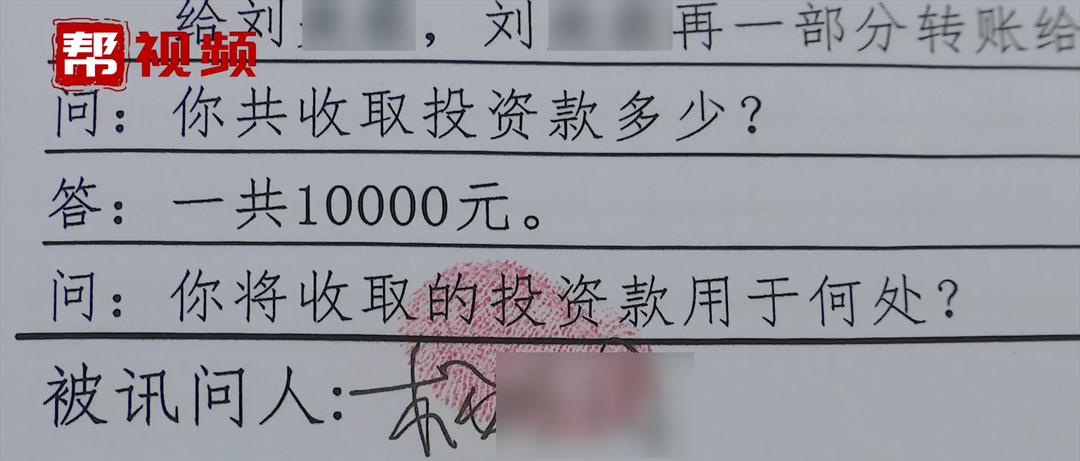 帮视频
给刘，刘再一部分转账给
问：你共收取投资款多少？
答：一共10000元。
问：你将收取的投资款用于何处？
被讯问人：